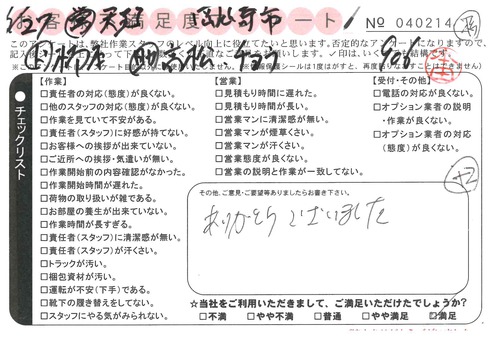 お客様満足度アンケート
No 040214
このアンケートは、弊社作業スタッフのレベル向上に役立てたいと思います。否定的なアンケートになりますので、
チェックリスト
【作業】
□責任者の対応(態度)が良くない。
□他のスタッフの対応(態度)が良くない。
□作業を見ていて不安がある。
□責任者(スタッフ)に好感が持てない。
□お客様への挨拶が出来ていない。
□ご近所への挨拶・気遣いが無い。
□作業開始前の内容確認がなかった。
□作業開始時間が遅れた。
□荷物の取り扱いが雑である。
□お部屋の養生が出来ていない。
□作業時間が長すぎる。
□責任者(スタッフ)に清潔感が無い。
□責任者(スタッフ)が汗くさい。
□トラックが汚い。
□梱包資材が汚い。
□運転が不安(下手)である。
□靴下の履き替えをしてない。
□スタッフにやる気がみられない。
【営業】
□見積もり時間に遅れた。
□見積もり時間が長い。
□営業マンに清潔感が無い。
□営業マンが煙草くさい。
□営業マンが汗くさい。
□営業態度が良くない。
□営業の説明と作業が一致してない。
【受付・その他】
□電話の対応が良くない。
□オプション業者の説明
・作業が良くない。
□オプション業者の対応
(態度)が良くない。
その他、ご意見・ご要望等ありましたらお書き下さい。
ありがとうございました
☆当社をご利用いただきまして、ご満足いただけたでしょうか?
□不満 □やや不満 □普通 □やや満足 ☑満足